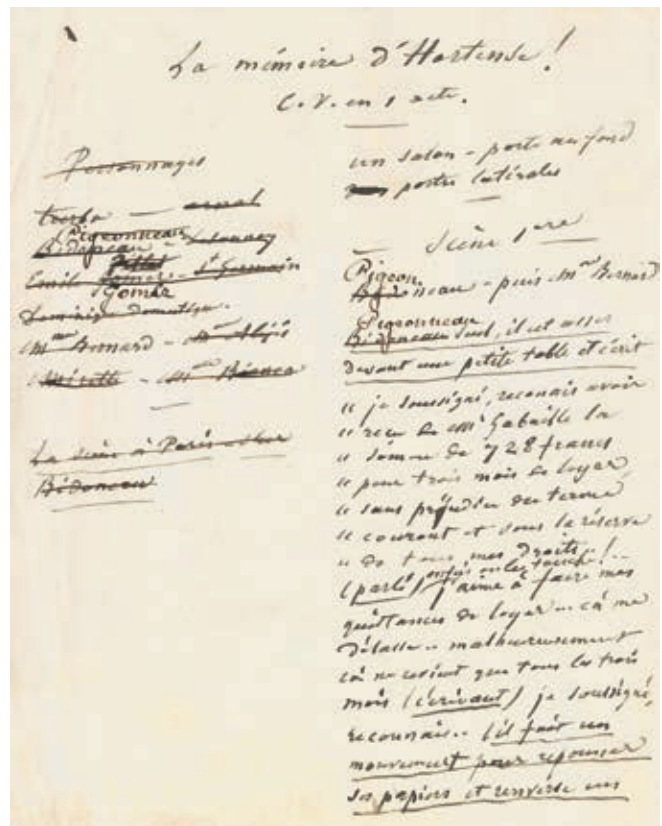 La mémoire d'Hortense !
C. V. en 1 acte.
Personnages
arnal
Pigeonneau
Bidonneau
Emile St Germain
Gomer
Dominique domestique.
Mme Bernard - Mme Alexis
Mme Bianca
La scène à Paris chez
Bidonneau
un salon - porte au fond
portes latérales
Scène 1ere
Pigeon
neau - puis Mme Bernard
Pigeonneau
Bidonneau seul, il est assis
devant une petite table et écrit
" je soussigné, reconais avoir
" reçu de Mr Gabaille la
" somme de 728 francs
" pour trois mois de loyer,
" sans préjudice du terme
" courant et sous la réserve
" de tous mes droits " !..
(parlé) j'aime à faire mes
quittances de loyer... cà me
délasse.. malheureusement
cà ne revient que tous les trois
mois (écrivant) je soussigné,
reconnais.. (il fait un
mouvement pour repousser
ses papiers et renverse un